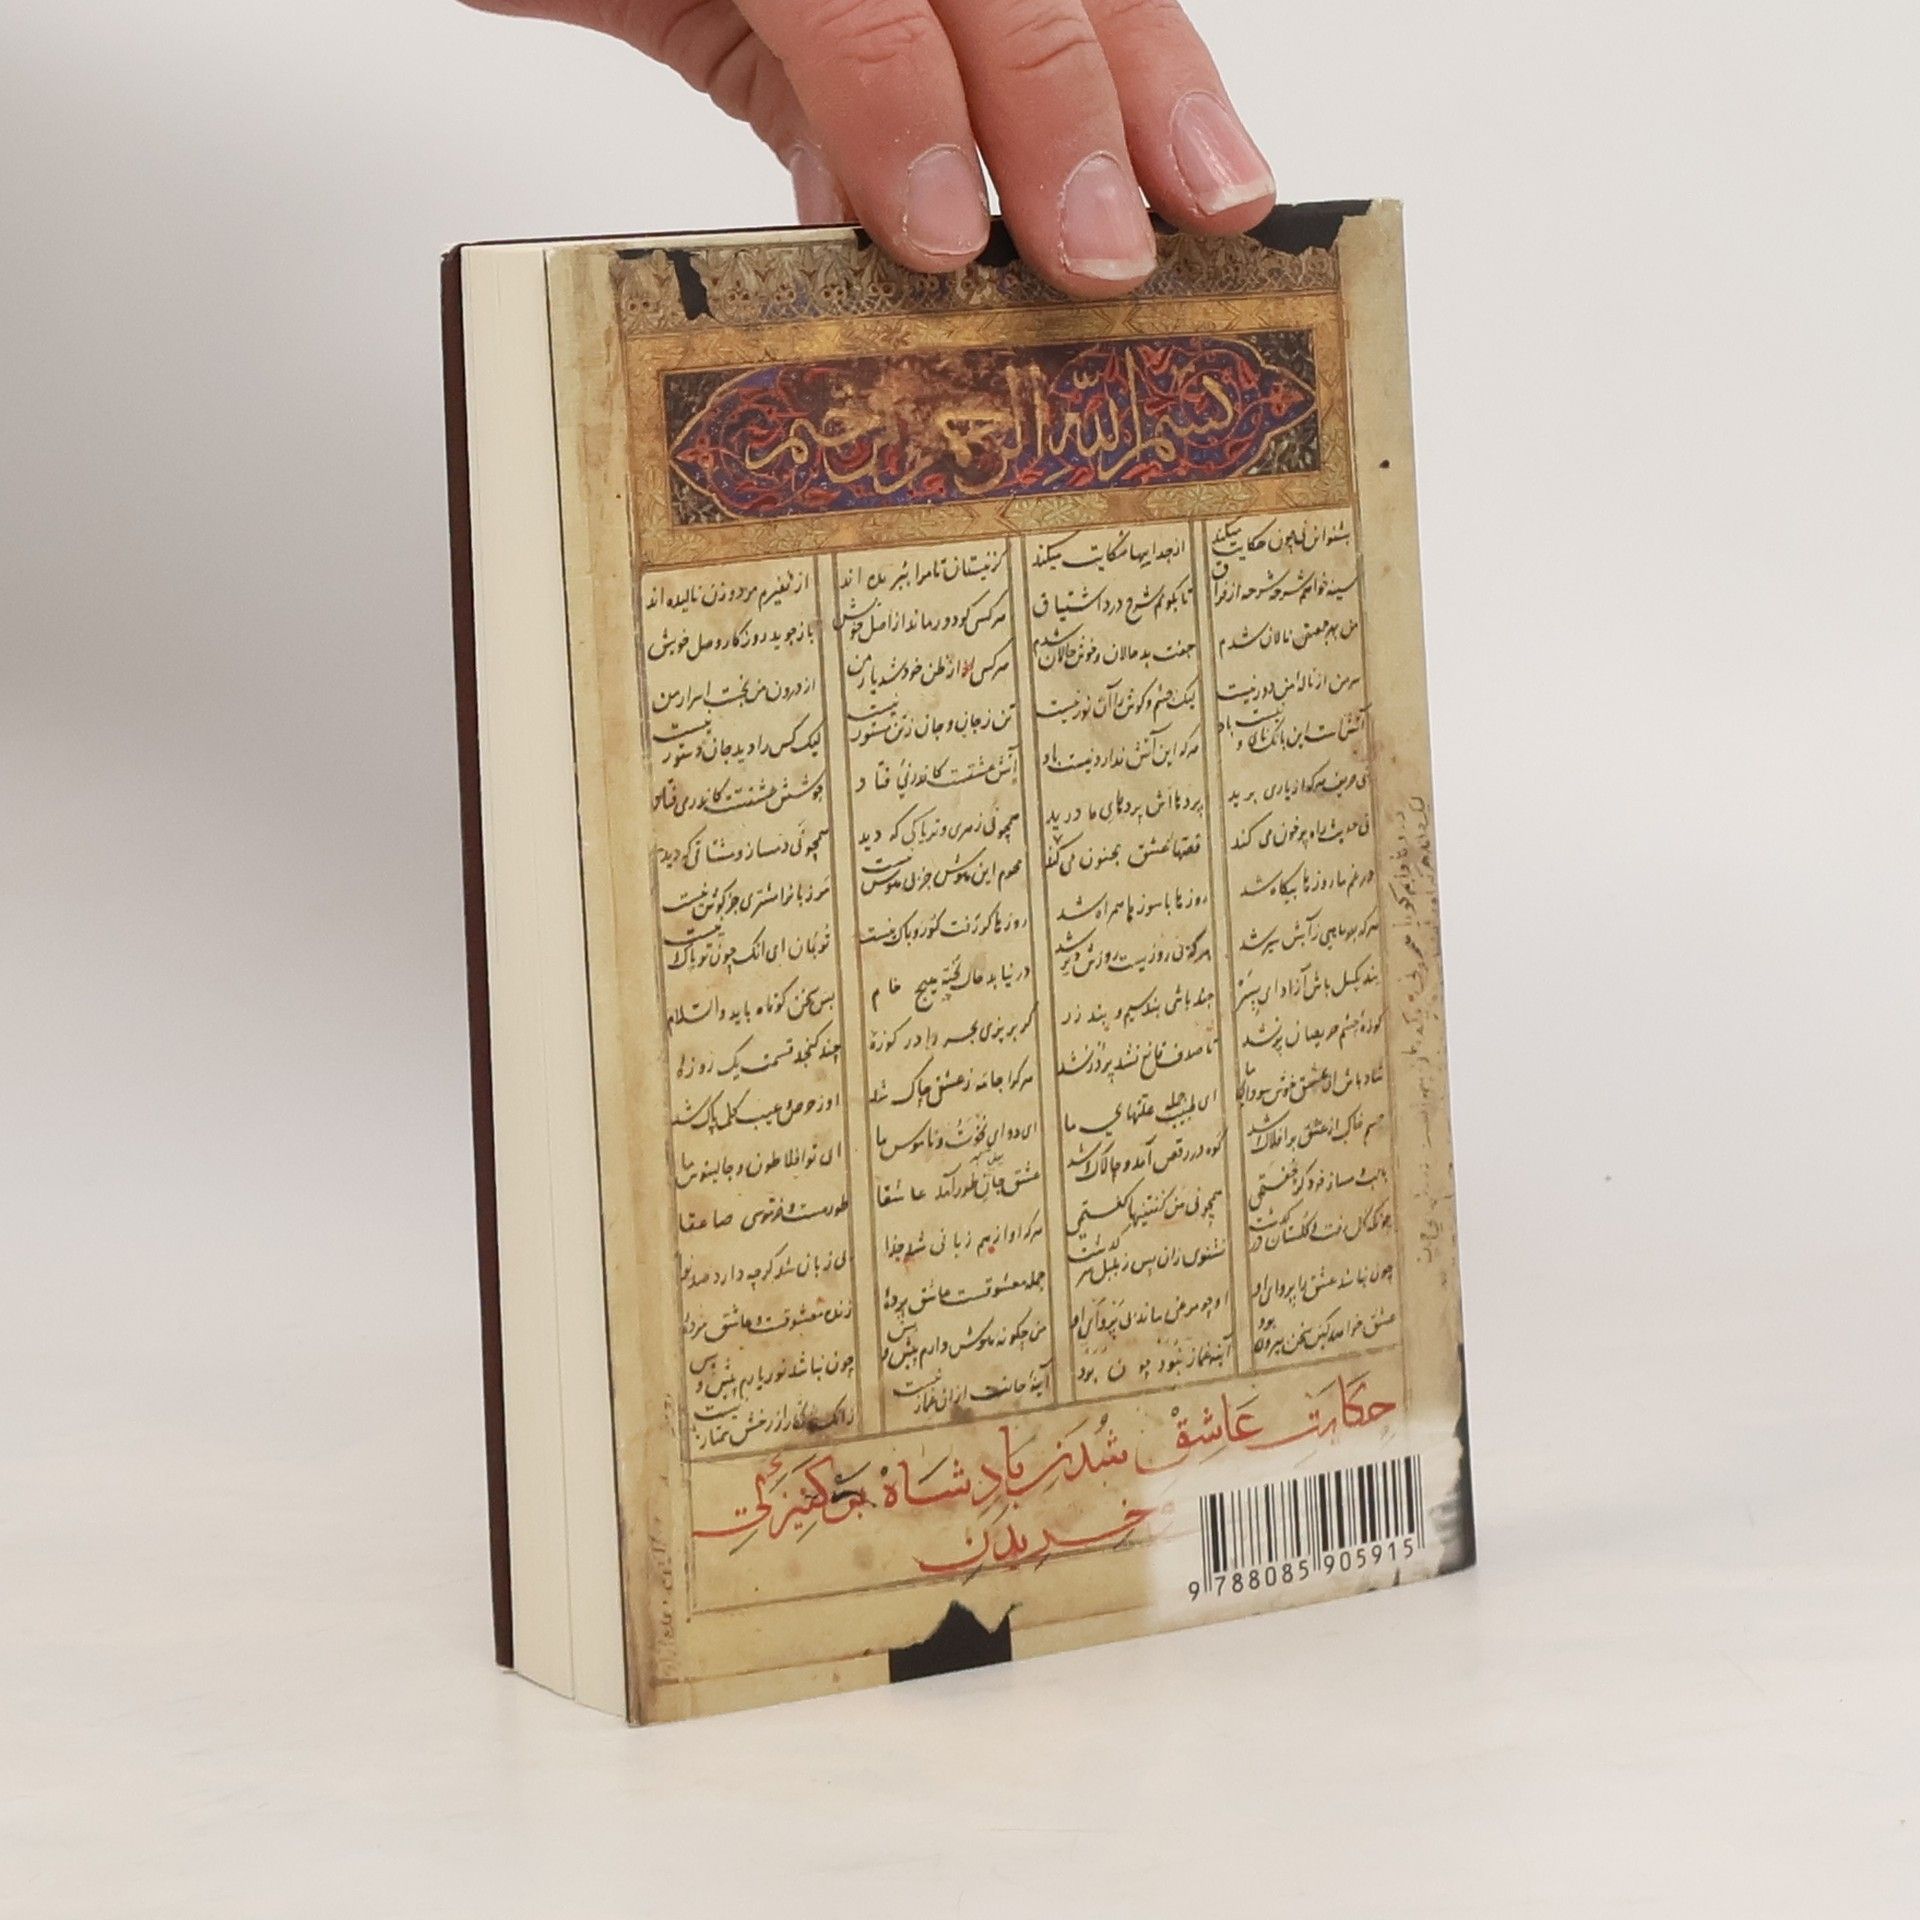 بسم الله الرحمن الرحیم
بشنو این نی چون حکایت میکند از جداییها شکایت میکند کز نیستان تا مرا ببریده اند از نفیرم مرد و زن نالیده اند
سینه خواهم شرحه شرحه از فراق تا بگویم شرح درد اشتیاق هر کسی کو دور ماند از اصل خویش باز جوید روزگار وصل خویش
من بهر جمعیتی نالان شدم جفت بد حالان و خوش حالان شدم هر کسی از ظن خود شد یار من از درون من نجست اسرار من
سر من از ناله من دور نیست لیک چشم و گوش را آن نور نیست تن ز جان و جان ز تن مستور نیست لیک کس را دید جان دستور نیست
آتش است این بانک نای و نیست باد هر که این آتش ندارد نیست باد آتش عشقست کاندر نی فتاد جوشش عشقست کاندر می فتاد
نی حریف هر که از یاری برید پردهااش پردهای ما درید همچو نی زهری و تریاکی که دید همچو نی دمساز و مشتاقی که دید
نی حدیث راه پر خون می کند قصهای عشق مجنون می کند محرم این هوش جز بی هوش نیست مر زبانرا مشتری جز گوش نیست
در غم ما روزها بیگاه شد روزها با سوزها همراه شد روزها گر رفت گو رو باک نیست تو بمان ای آنک چون تو پاک نیست
هر که جز ماهی ز آبش سیر شد هر که بی روزیست روزش دیر شد در نیابد حال پخته هیچ خام بس سخن کوتاه باید والسلام
بند بکسل باش آزاد ای پسر چند باشی بند سیم و بند زر گر بریزی بحر را در کوزه چند گنجد قسمت یک روزه
کوزه چشم حریصان پر نشد تا صدف قانع نشد پر در نشد هر کرا جامه ز عشقی چاک شد او ز حرص و عیب کلی پاک شد
شاد باش ای عشق خوش سودای ما ای طبیب جمله علتهای ما ای دوای نخوت و ناموس ما ای تو افلاطون و جالینوس ما
جسم خاک از عشق بر افلاک شد کوه در رقص آمد و چالاک شد عشق جان طور آمد عاشقا طور مست و خر موسی صاعقا
با لب دمساز خود گر جفتمی همچو نی من گفتنیها گفتمی هر که او از هم زبانی شد جدا بی زبان شد گرچه دارد صد نوا
چونکه گل رفت و گلستان در گذشت نشنوی زان پس ز بلبل سر گذشت جمله معشوقست و عاشق پرده زنده معشوقست و عاشق مرده
چون نباشد عشق را پروای او او چو مرغی ماند بی پروای او من چگونه هوش دارم پیش و پس چون نباشد نور یارم پیش و پس
عشق خواهد کین سخن بیرون بود آینه غماز نبود چون بود آینه جانت ازان غماز نیست زانک زنگار از رخش ممتاز نیست
حکایت عاشق شدن پادشاه بر کنیزکی
خریدن
9 788085 905915